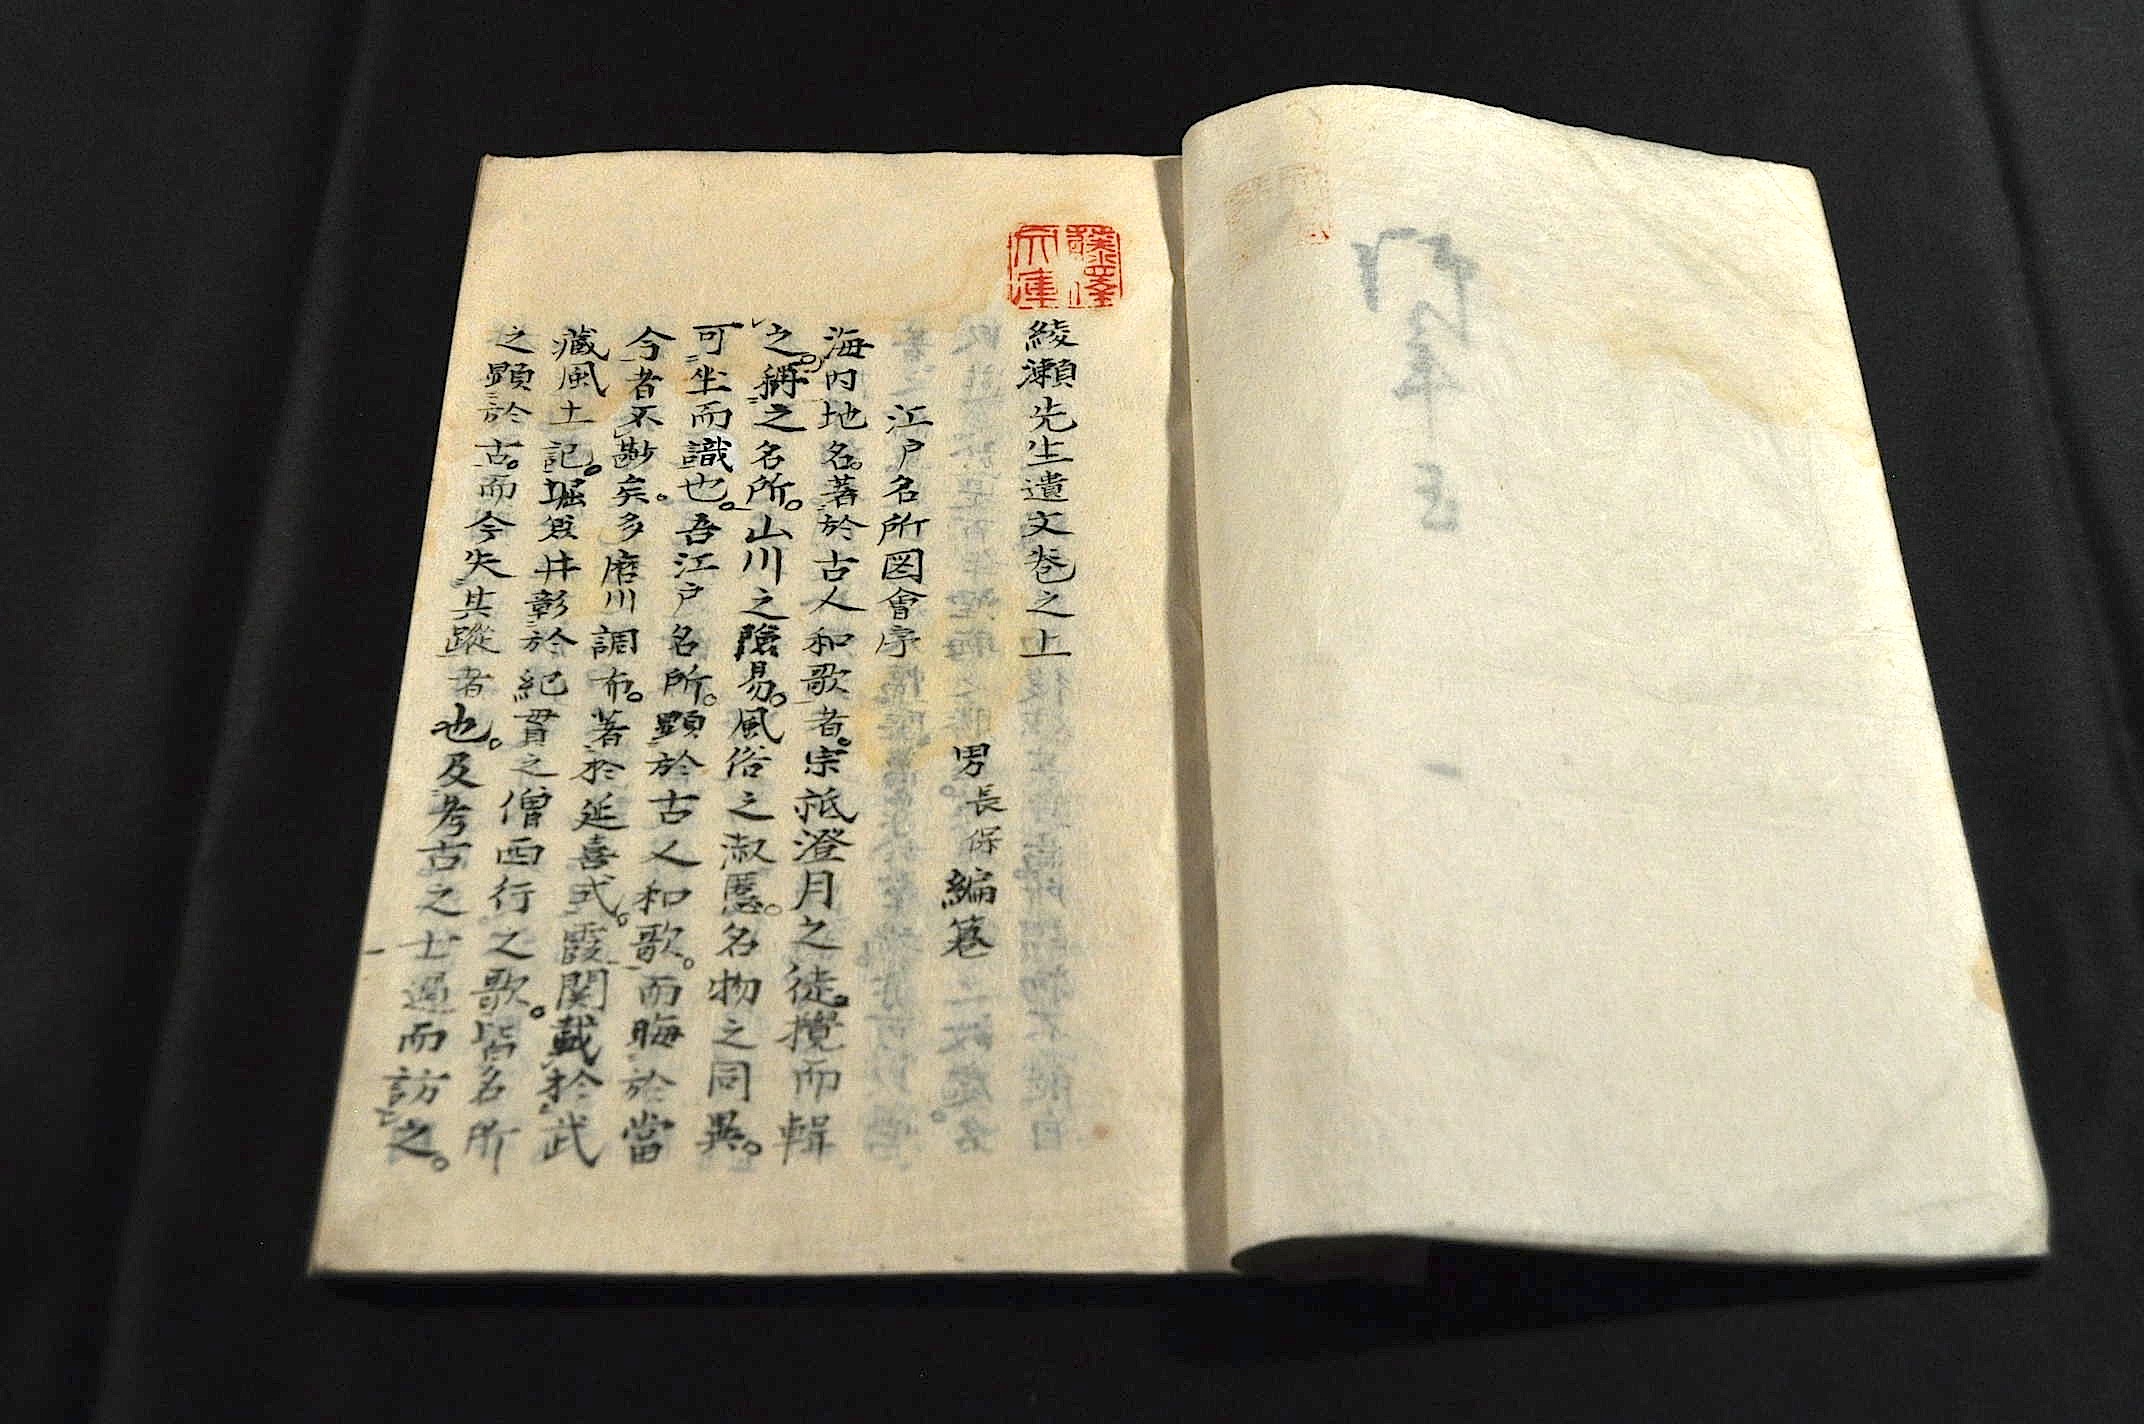 綾瀬先生遺文巻之上
男長保編篹
江戸名所図會序
海内地名。著於古人和歌者。宗祇澄月之徒。攬而輯
之。稱之名所。山川之險易。風俗之淑慝。名物之同異。
可坐而識也。吾江戸名所。顕於古人和歌。而晦於當
今者不尠矣。多磨川調布。著於延喜式。霞関載於武
蔵風土記。堀兼井彰於紀貫之僧西行之歌。皆名所
之顕於古。而今失其蹤者也。及考古之士過而訪之。